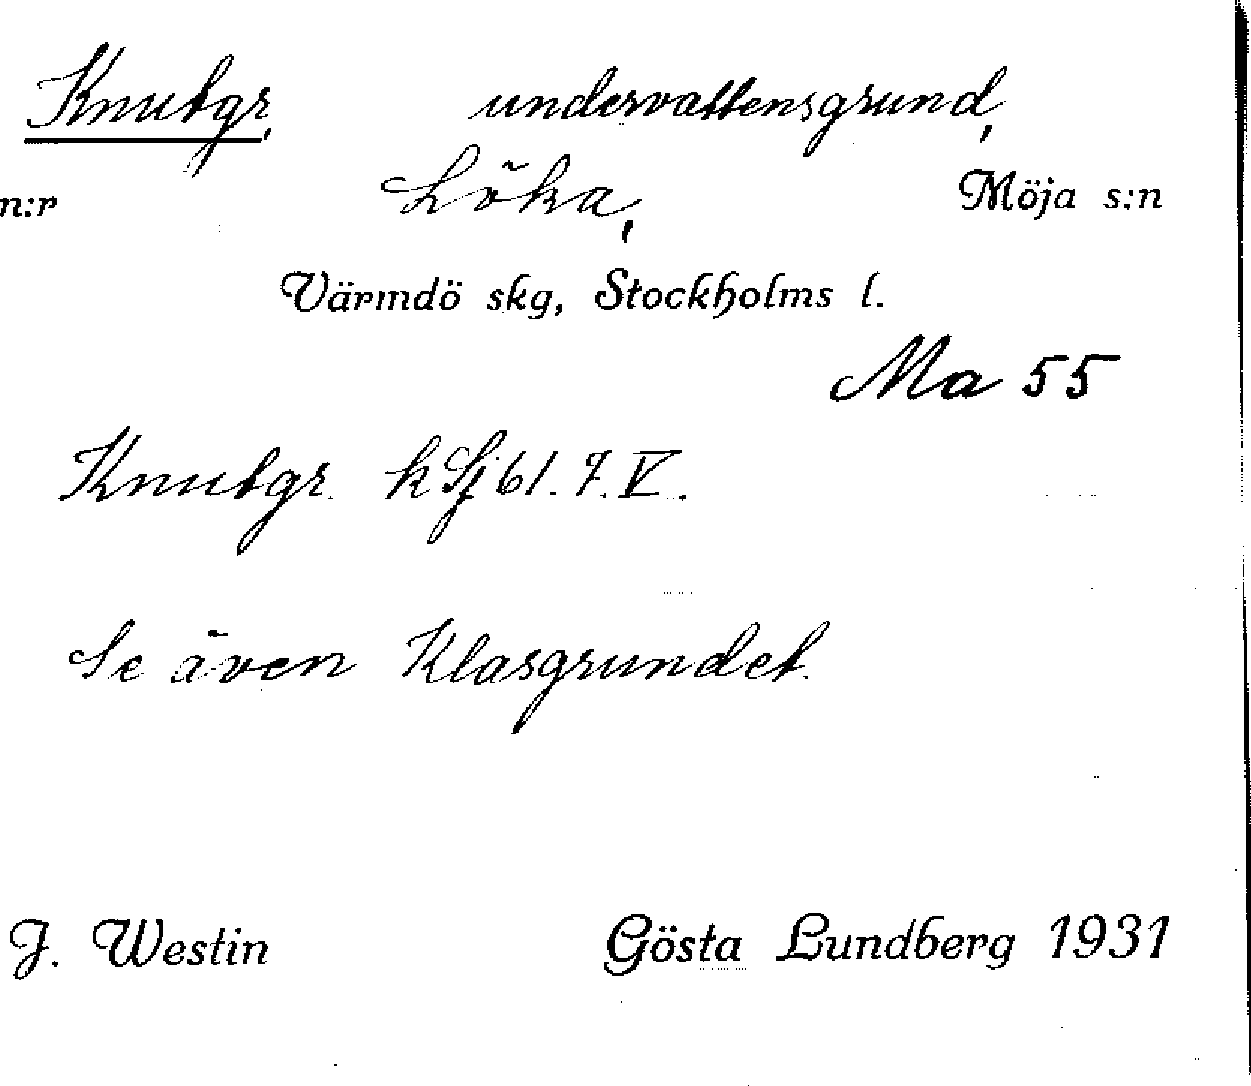 Knutgr, undervattensgrund,
n:r Löka, Möja s:n
Värmdö skg, Stockholms l.
Ma 55
Knutgr. k Sj 61. 7. V.
Se även Klasgrundet.
J. Westin Gösta Lundberg 1931